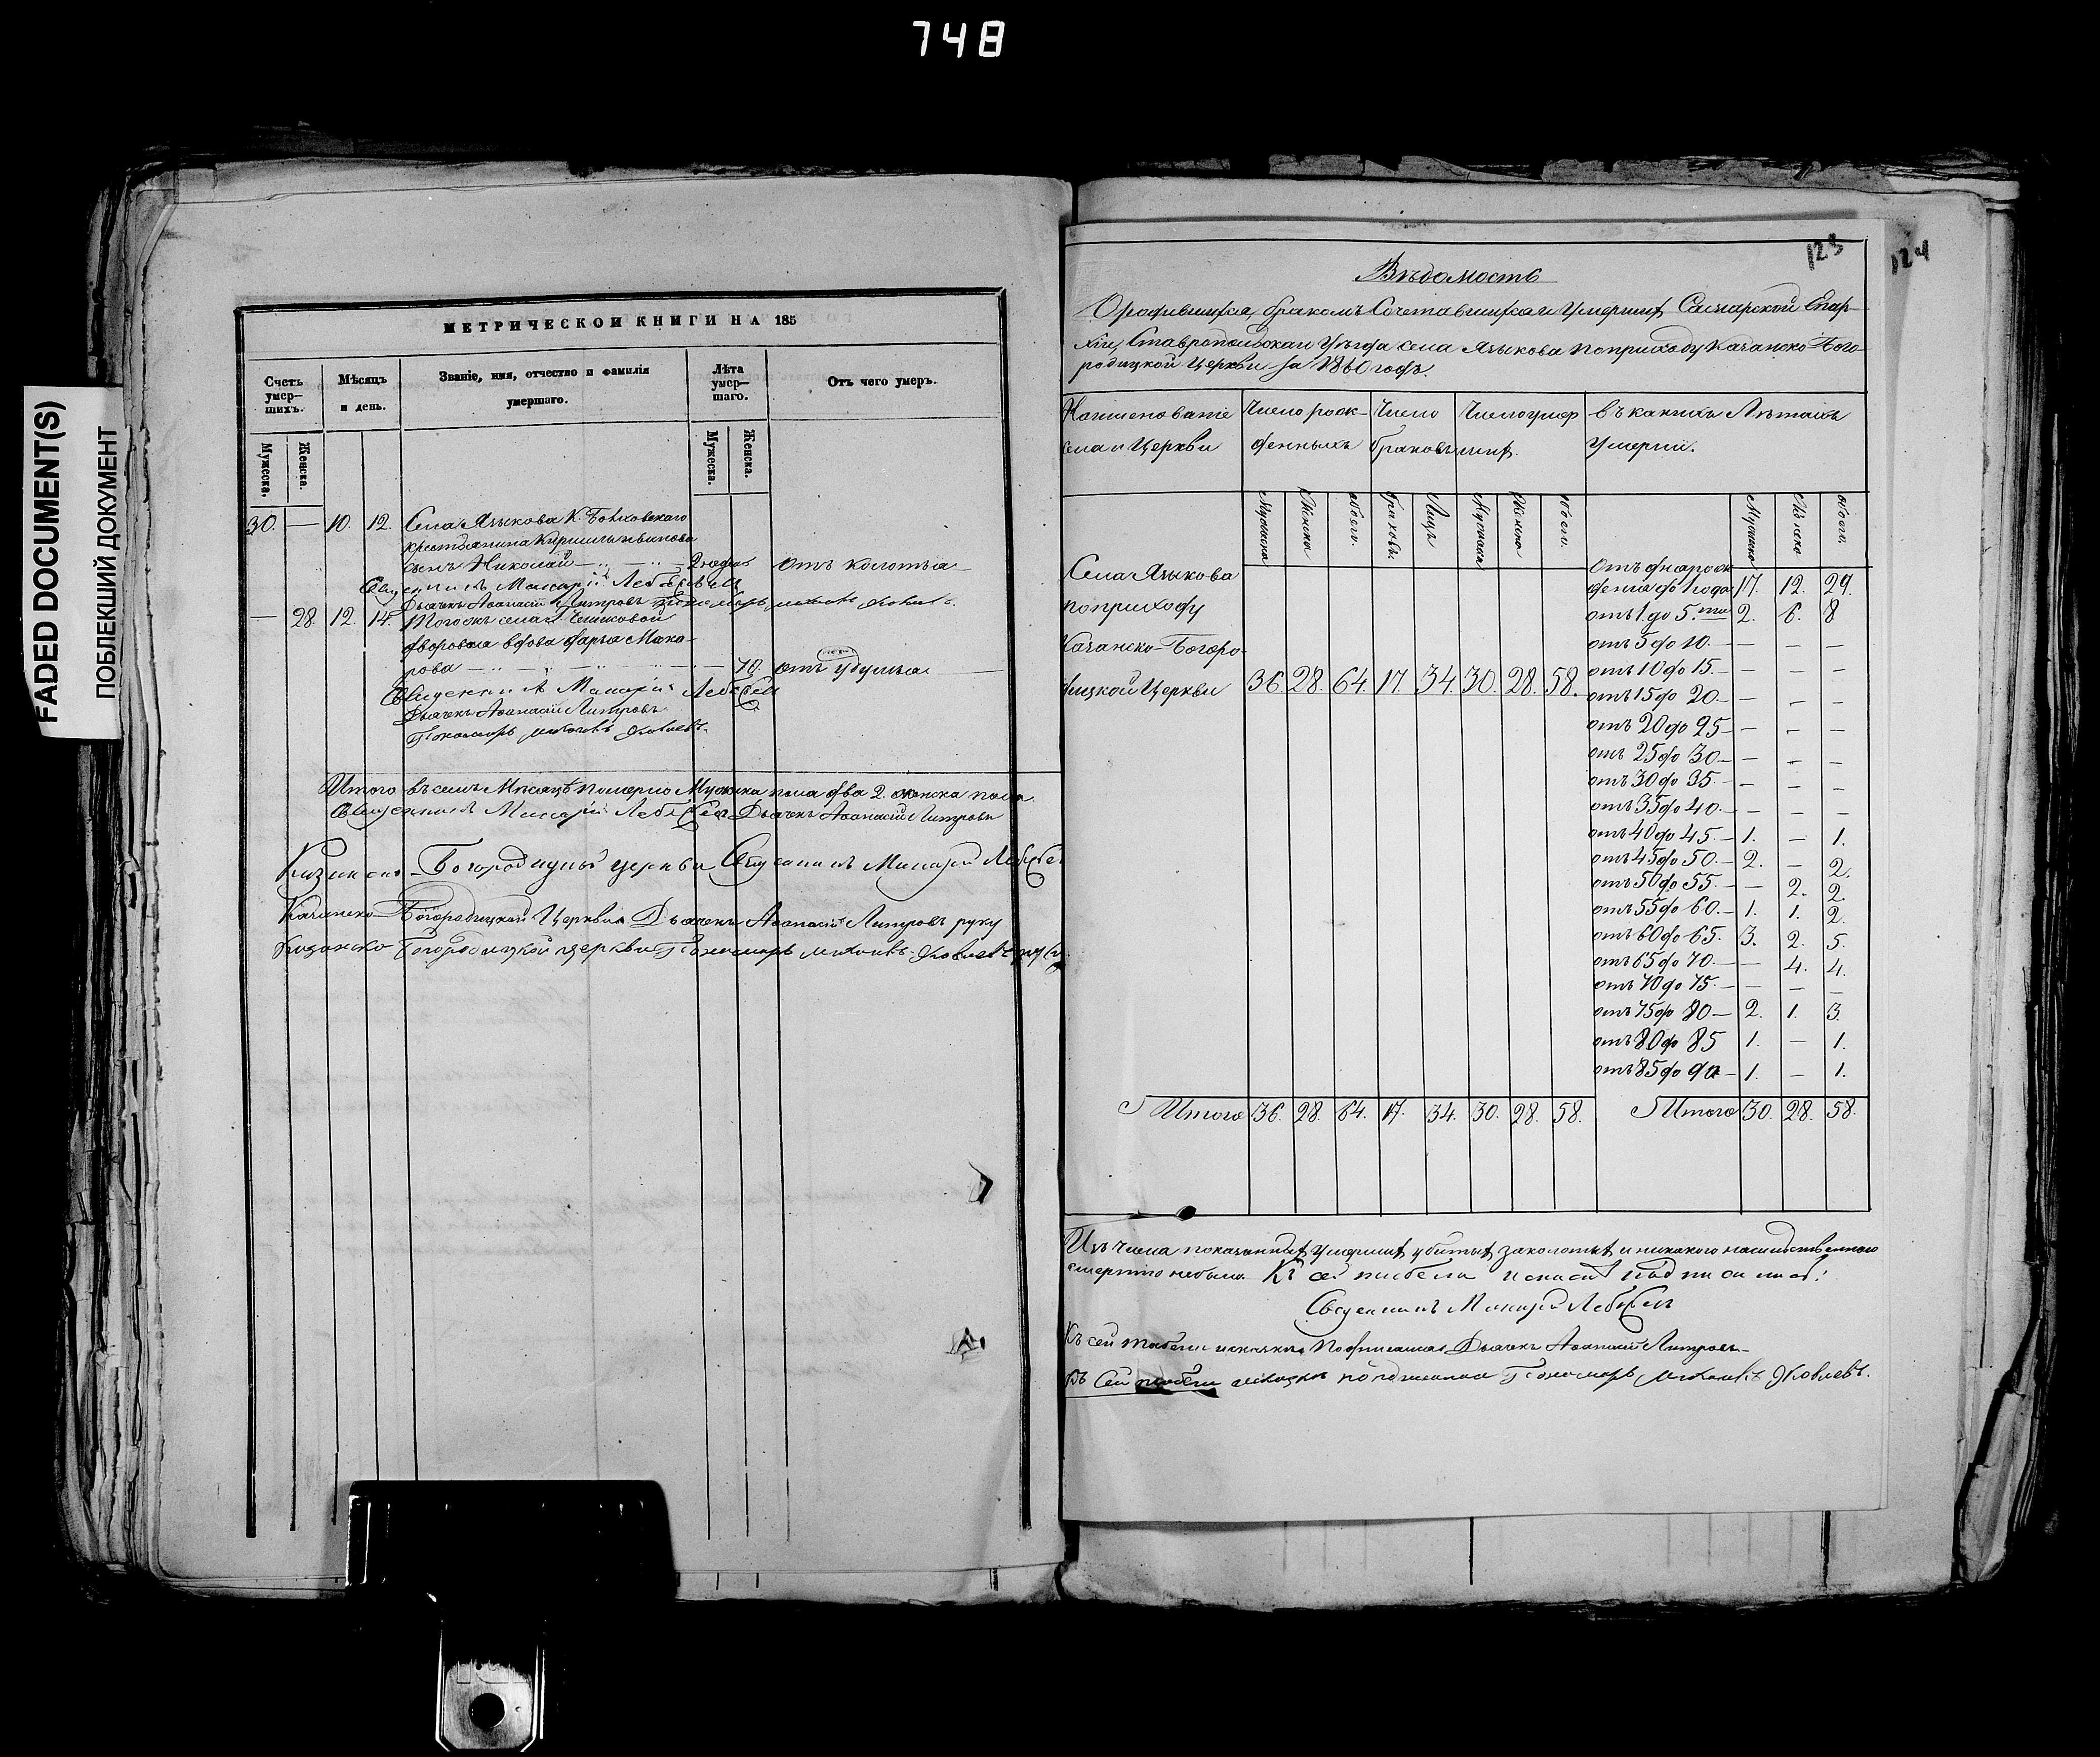 748
FADED DOCUMENT(S)
ПОБЛЕКШИЙ ДОКУМЕНТ
МЕТРИЧЕСКОЙ КНИГИ НА 185
Счетъ умер—шихъ.
Мѣсяцъ и день.
Званіе, имя, отчество и фамилія умершаго.
Лѣта умер—шаго.
Отъ чего умеръ.
Мужеска. Женска. Мужеска. Женска.
30. — 10. 12. Села Языкова К.
крестьянина
сынъ Николай 2 отъ колотья
Священникъ Макарій Лебедевъ
Дьячекъ Афанасій Пономарь
— 28. 12. 14. села
дворовая вдова Дарья Мака-
рова 70. отъ удушья
Священникъ Макарій Лебедевъ
Дьячекъ Афанасій
Пономарь Яковлевъ.
Итого въ семъ Мѣсяцѣ померло Мужска пола два 2. женска пола
Священникъ Макарій Лебедевъ Дьячекъ Афанасій
Казанско-Богородицкой церкви Священникъ Макарій Лебедев
Казанско-Богородицкой Церкви Дьячекъ Афанасій руку
Казанско Богородицкой церкви Пономарь Яковлевъ руку
123 124
Вѣдомость
О родившихся, бракомъ Сочетавшихся и Умершихъ Самарской Епар-
хіи, Ставропольскаго Уѣзда села Языкова по приходу Казанско-Бого-
родицкой Церкви за 1860 годъ.
Наименованіе Число рож- Число Число умер въ какихъ Лѣтахъ
села и Церкви денныхъ браковъ шихъ. Умерли.
Мужска Женска обоего. браковъ. Лицъ Мужска Женска обоего. Мужска Женска обоего.
Села Языкова
по приходу
Казанско-Богоро-
дицкой Церкви 36. 28. 64. 17. 34. 30. 28. 58.
Отъ дня рож
денія до 1 года 17. 12. 29.
отъ 1. до 5.ти 2. 6. 8
отъ 5 до 10. — — —
отъ 10 до 15. — — —
отъ 15 до 20. — — —
отъ 20 до 25 — — —
отъ 25 до 30 — — —
отъ 30 до 35. — — —
отъ 35 до 40. — — —
отъ 40 до 45. 1. — 1.
отъ 45 до 50. 2. — 2.
отъ 50 до 55. — 2. 2.
отъ 55 до 60. 1. 1. 2.
отъ 60 до 65. 3. 2. 5.
отъ 65 до 70. — 4. 4.
отъ 70 до 75. — — —
отъ 75 до 80 2. 1. 3.
отъ 80 до 85 1. — 1.
отъ 85 до 90 1. — 1.
Итого 36. 28. 64. 17. 34. 30. 28. 58. Итого 30. 28. 58.
Изъ числа показанныхъ умершихъ убитыхъ, заколотыхъ и никакого насильственною
смертію небыло. Къ сей
Священникъ Макарій Лебедевъ
Къ сей Дьячекъ Афанасій
Къ Сей Пономарь Яковлевъ.